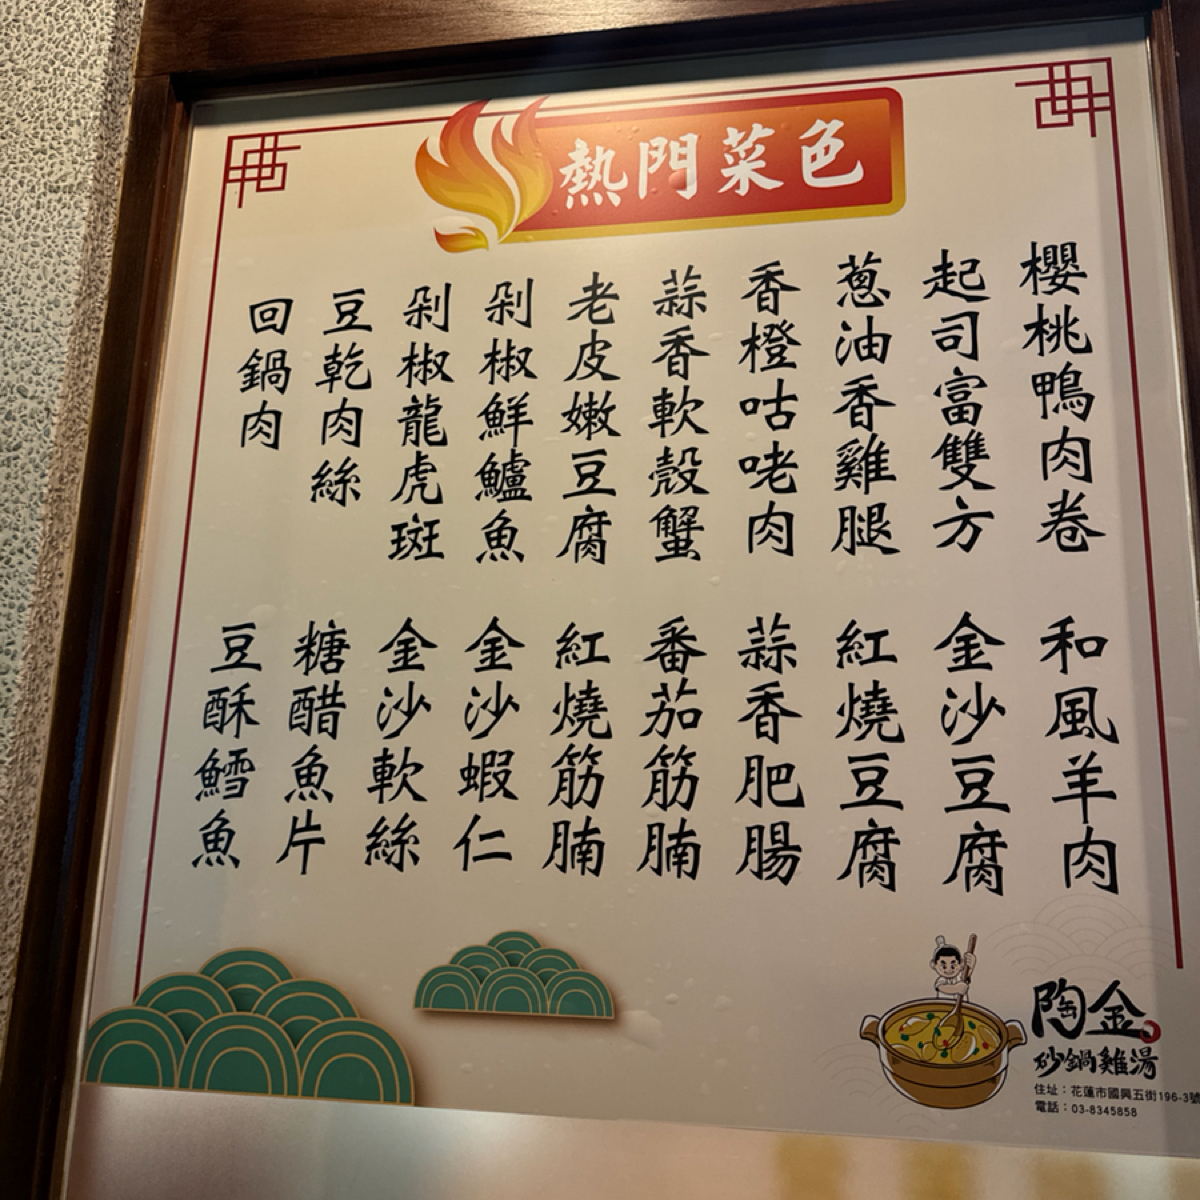 熱門菜色
櫻桃鴨肉卷
起司富雙方
蔥油香雞腿
香橙咕咾肉
蒜香軟殼蟹
老皮嫩豆腐
剁椒鮮鱸魚
剁椒龍虎斑
豆乾肉絲
回鍋肉
和風羊肉
金沙豆腐
紅燒豆腐
蒜香肥腸
番茄筋腩
紅燒筋腩
金沙蝦仁
金沙軟絲
糖醋魚片
豆酥鱈魚
陶金
砂鍋雞湯
住址：花蓮市國興五街196-3號
電話：03-8345858